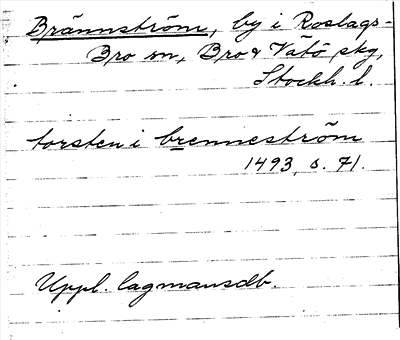 Brännström, by i Roslags-
Bro sn, Bro & Vätö skg,
Stockh. l.
torsten i brenneström
1493, s. 71.
Uppl. lagmansdb.